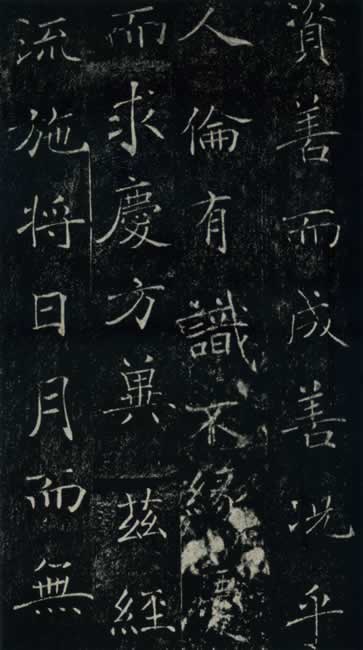 資善而成善況乎
人倫有識不緣慶
而求慶方冀茲經
流施將日月而無